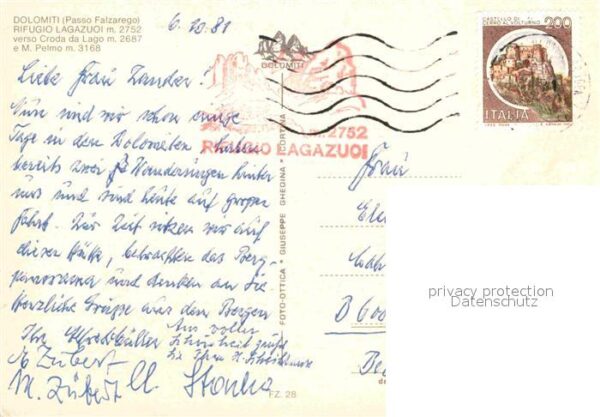 DOLOMITI (Passo Falzarego)
RIFUGIO LAGAZUOI m. 2752
verso Croda da Lago m. 2687
e M. Pelmo m. 3168
6. 10. 81
DOLOMITI
2752
RIFUGIO LAGAZUOI
CASTELLO DI
CERRO AL VOLTURNO
200
ITALIA
Liebe Frau Zander!
Nun sind wir schon einige
Tage in den Dolomiten, haben
bereits zwei Wanderungen hinter
uns und sind heute auf großer
Fahrt. Zur Zeit sitzen wir auf
dieser Hütte, betrachten das Berg-
panorama und denken an Sie
Herzliche Grüße aus den Bergen
Ihr
Aus voller
Schönheit grüßt
Sie Ihre
M. Zübert
FOTO-OTTICA · GIUSEPPE GHEDINA · CORTINA
FZ. 28
Frau
privacy protection
Datenschutz